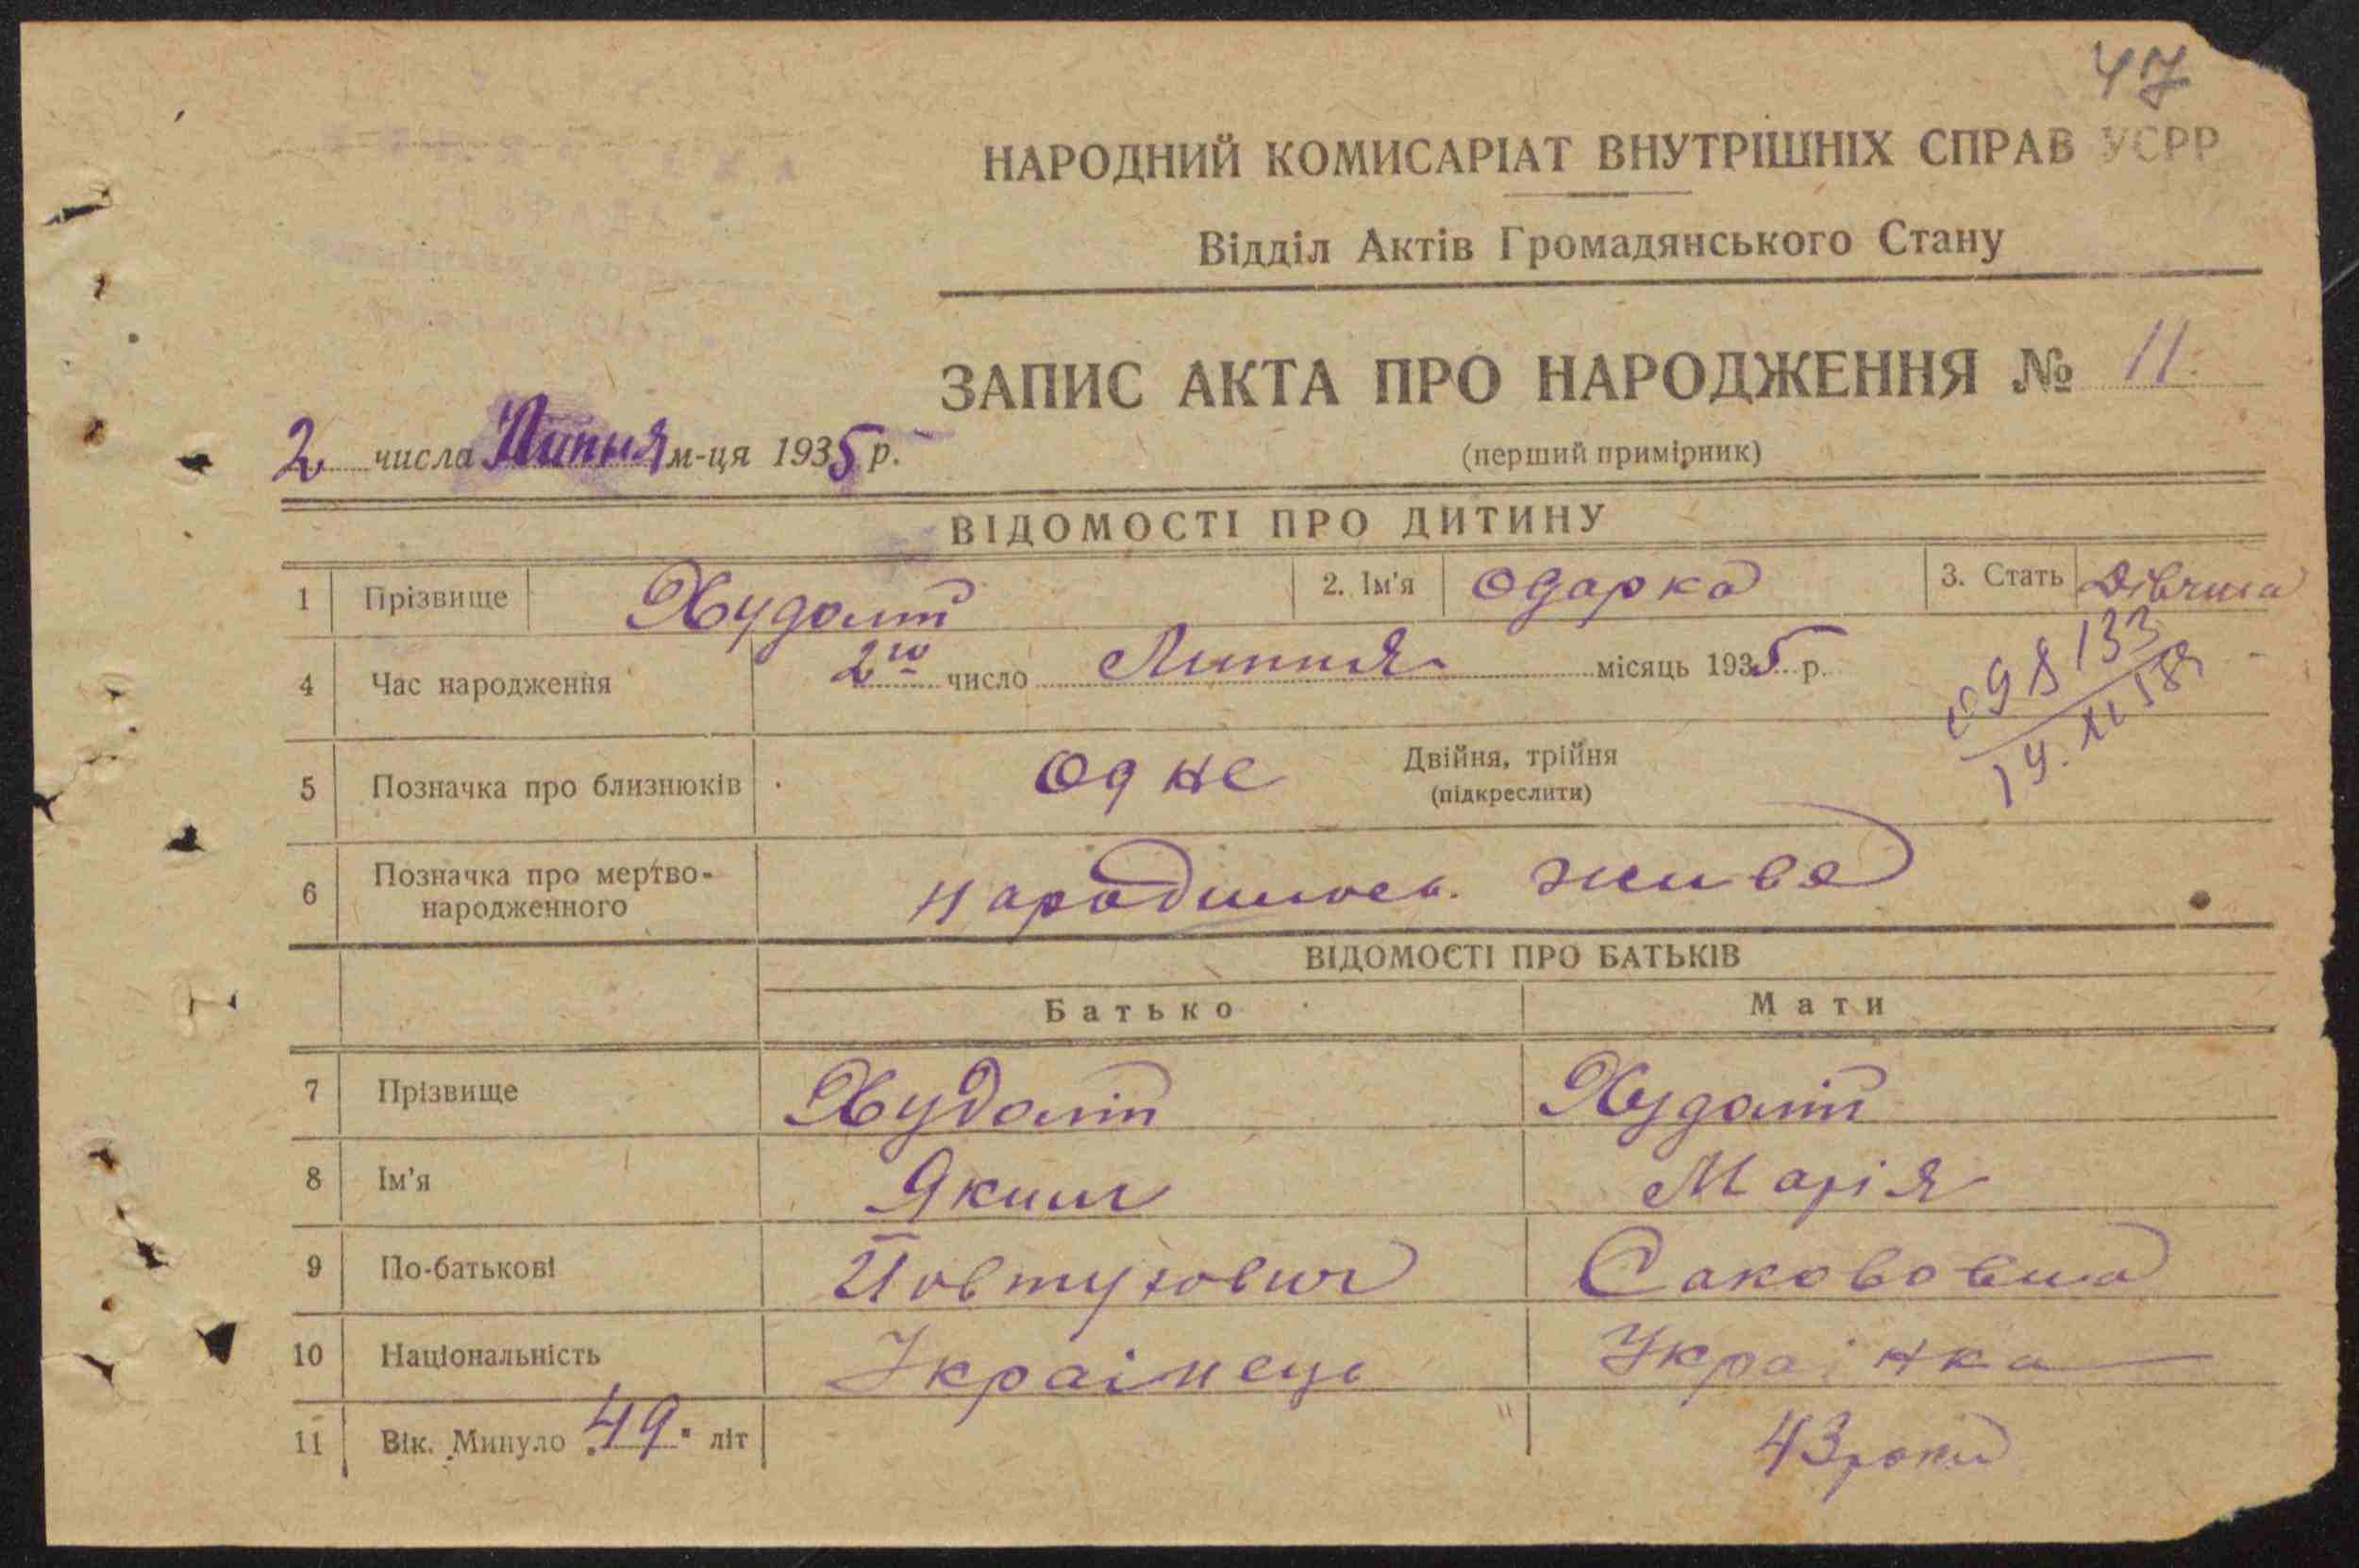 47
НАРОДНИЙ КОМИСАРІАТ ВНУТРІШНІХ СПРАВ УСРР
Відділ Актів Громадянського Стану
ЗАПИС АКТА ПРО НАРОДЖЕННЯ № 11
(перший примірник)
2 числа Липня м-ця 1935 р.
ВІДОМОСТІ ПРО ДИТИНУ
1 Прізвище Худоліт 2. Ім'я Одарка 3. Стать Дівчина
4 Час народження 2го число Липня місяць 1935 р.
098133
14.XI 58
5 Позначка про близнюків Одне Двійня, трійня
(підкреслити)
6 Позначка про мертво-
народженного народилось живе
ВІДОМОСТІ ПРО БАТЬКІВ
Батько Мати
7 Прізвище Худоліт Худоліт
8 Ім'я Яким Марія
9 По-батькові Йовтухович Сакововна
10 Національність Українець Українка
11 Вік. Минуло 49 літ 43 роки